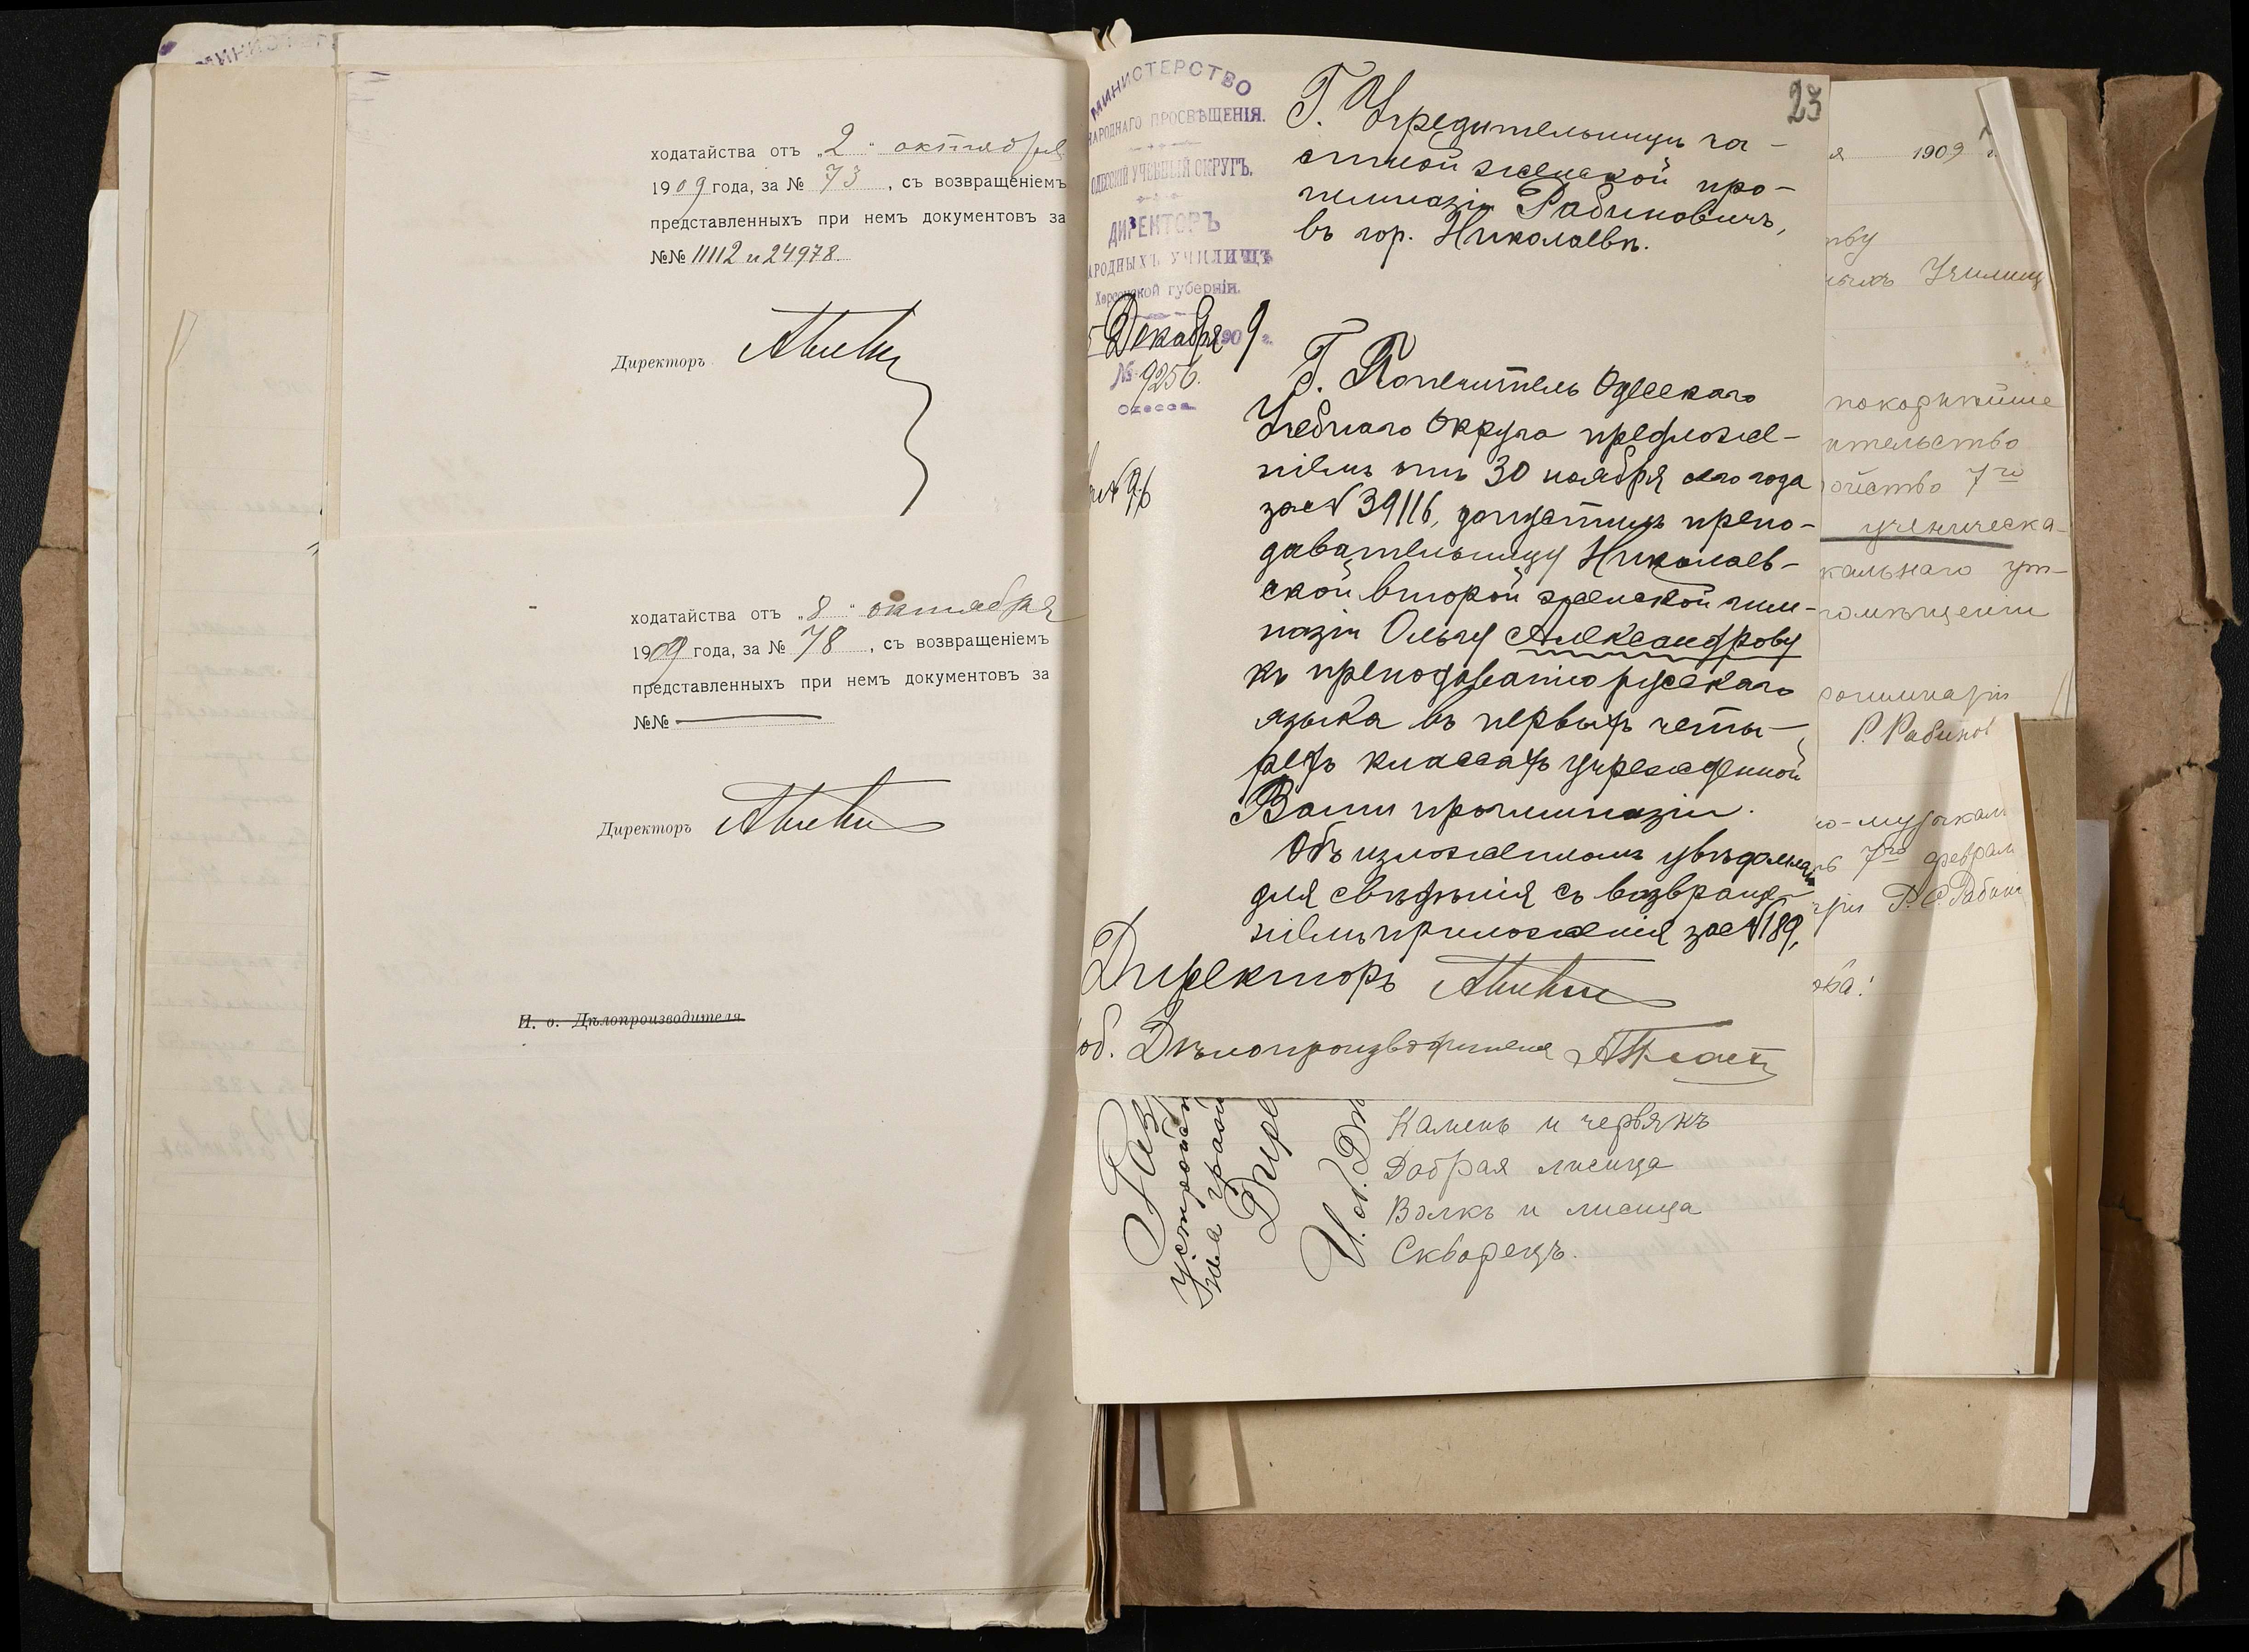 ходатайства отъ „2" октября
1909 года, за № 73, съ возвращеніемъ
представленныхъ при немъ документовъ за
№№ 11112 и 24978
Директоръ
ходатайства отъ „8" октября
1909 года, за № 78, съ возвращеніемъ
представленныхъ при немъ документовъ за
№№ —
Директоръ
И. о. Дѣлопроизводителя
МИНИСТЕРСТВО
НАРОДНАГО ПРОСВѢЩЕНІЯ.
ОДЕССКІЙ УЧЕБНЫЙ ОКРУГЪ.
ДИРЕКТОРЪ
НАРОДНЫХЪ УЧИЛИЩЪ
Херсонской губерніи.
Декабря 1909 г.
№ 9256.
Одесса
№ 96
23
Г. Учредительницѣ ча-
стной женской про-
гимназіи Рабиновичъ,
въ гор. Николаевѣ.
Г. Попечитель Одесскаго
Учебнаго Округа предложе-
ніемъ отъ 30 ноября сего года
за № 39116, допустилъ препо-
давательницу Николаев-
ской второй женской гим-
назіи Ольгу Александрову
къ преподаванію русскаго
языка въ первыхъ четы-
рехъ классахъ учрежденной
Вами прогимназіи.
Объ изложенномъ увѣдомляю
для свѣдѣнія съ возвраще-
ніемъ приложенія за № 189.
Директоръ
об. Дѣлопроизводителя
Камень и червякъ
Добрая лисица
Волкъ и лисица
Скворецъ.
устройст
Дире
И. об. Дѣ
я 1909 г.
ныхъ Училищ
покорнѣйше
ительство
7го
ученическа-
кальнаго ут-
помѣщеніи
рогимназіи
Р. Рабинов
но-музыкаль
7го феврал
Р. С. Рабин